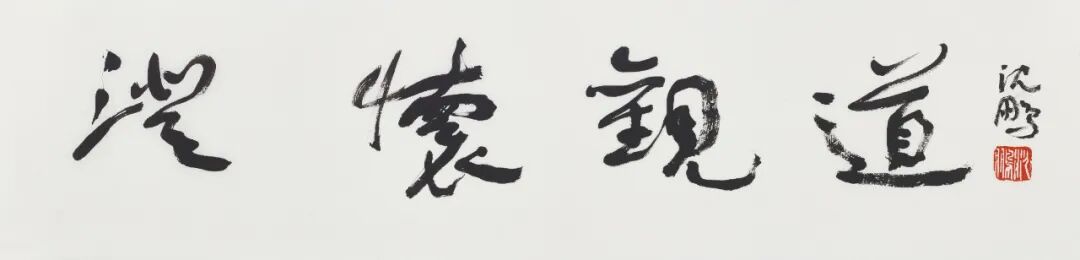 澄懷觀道
沈鵬